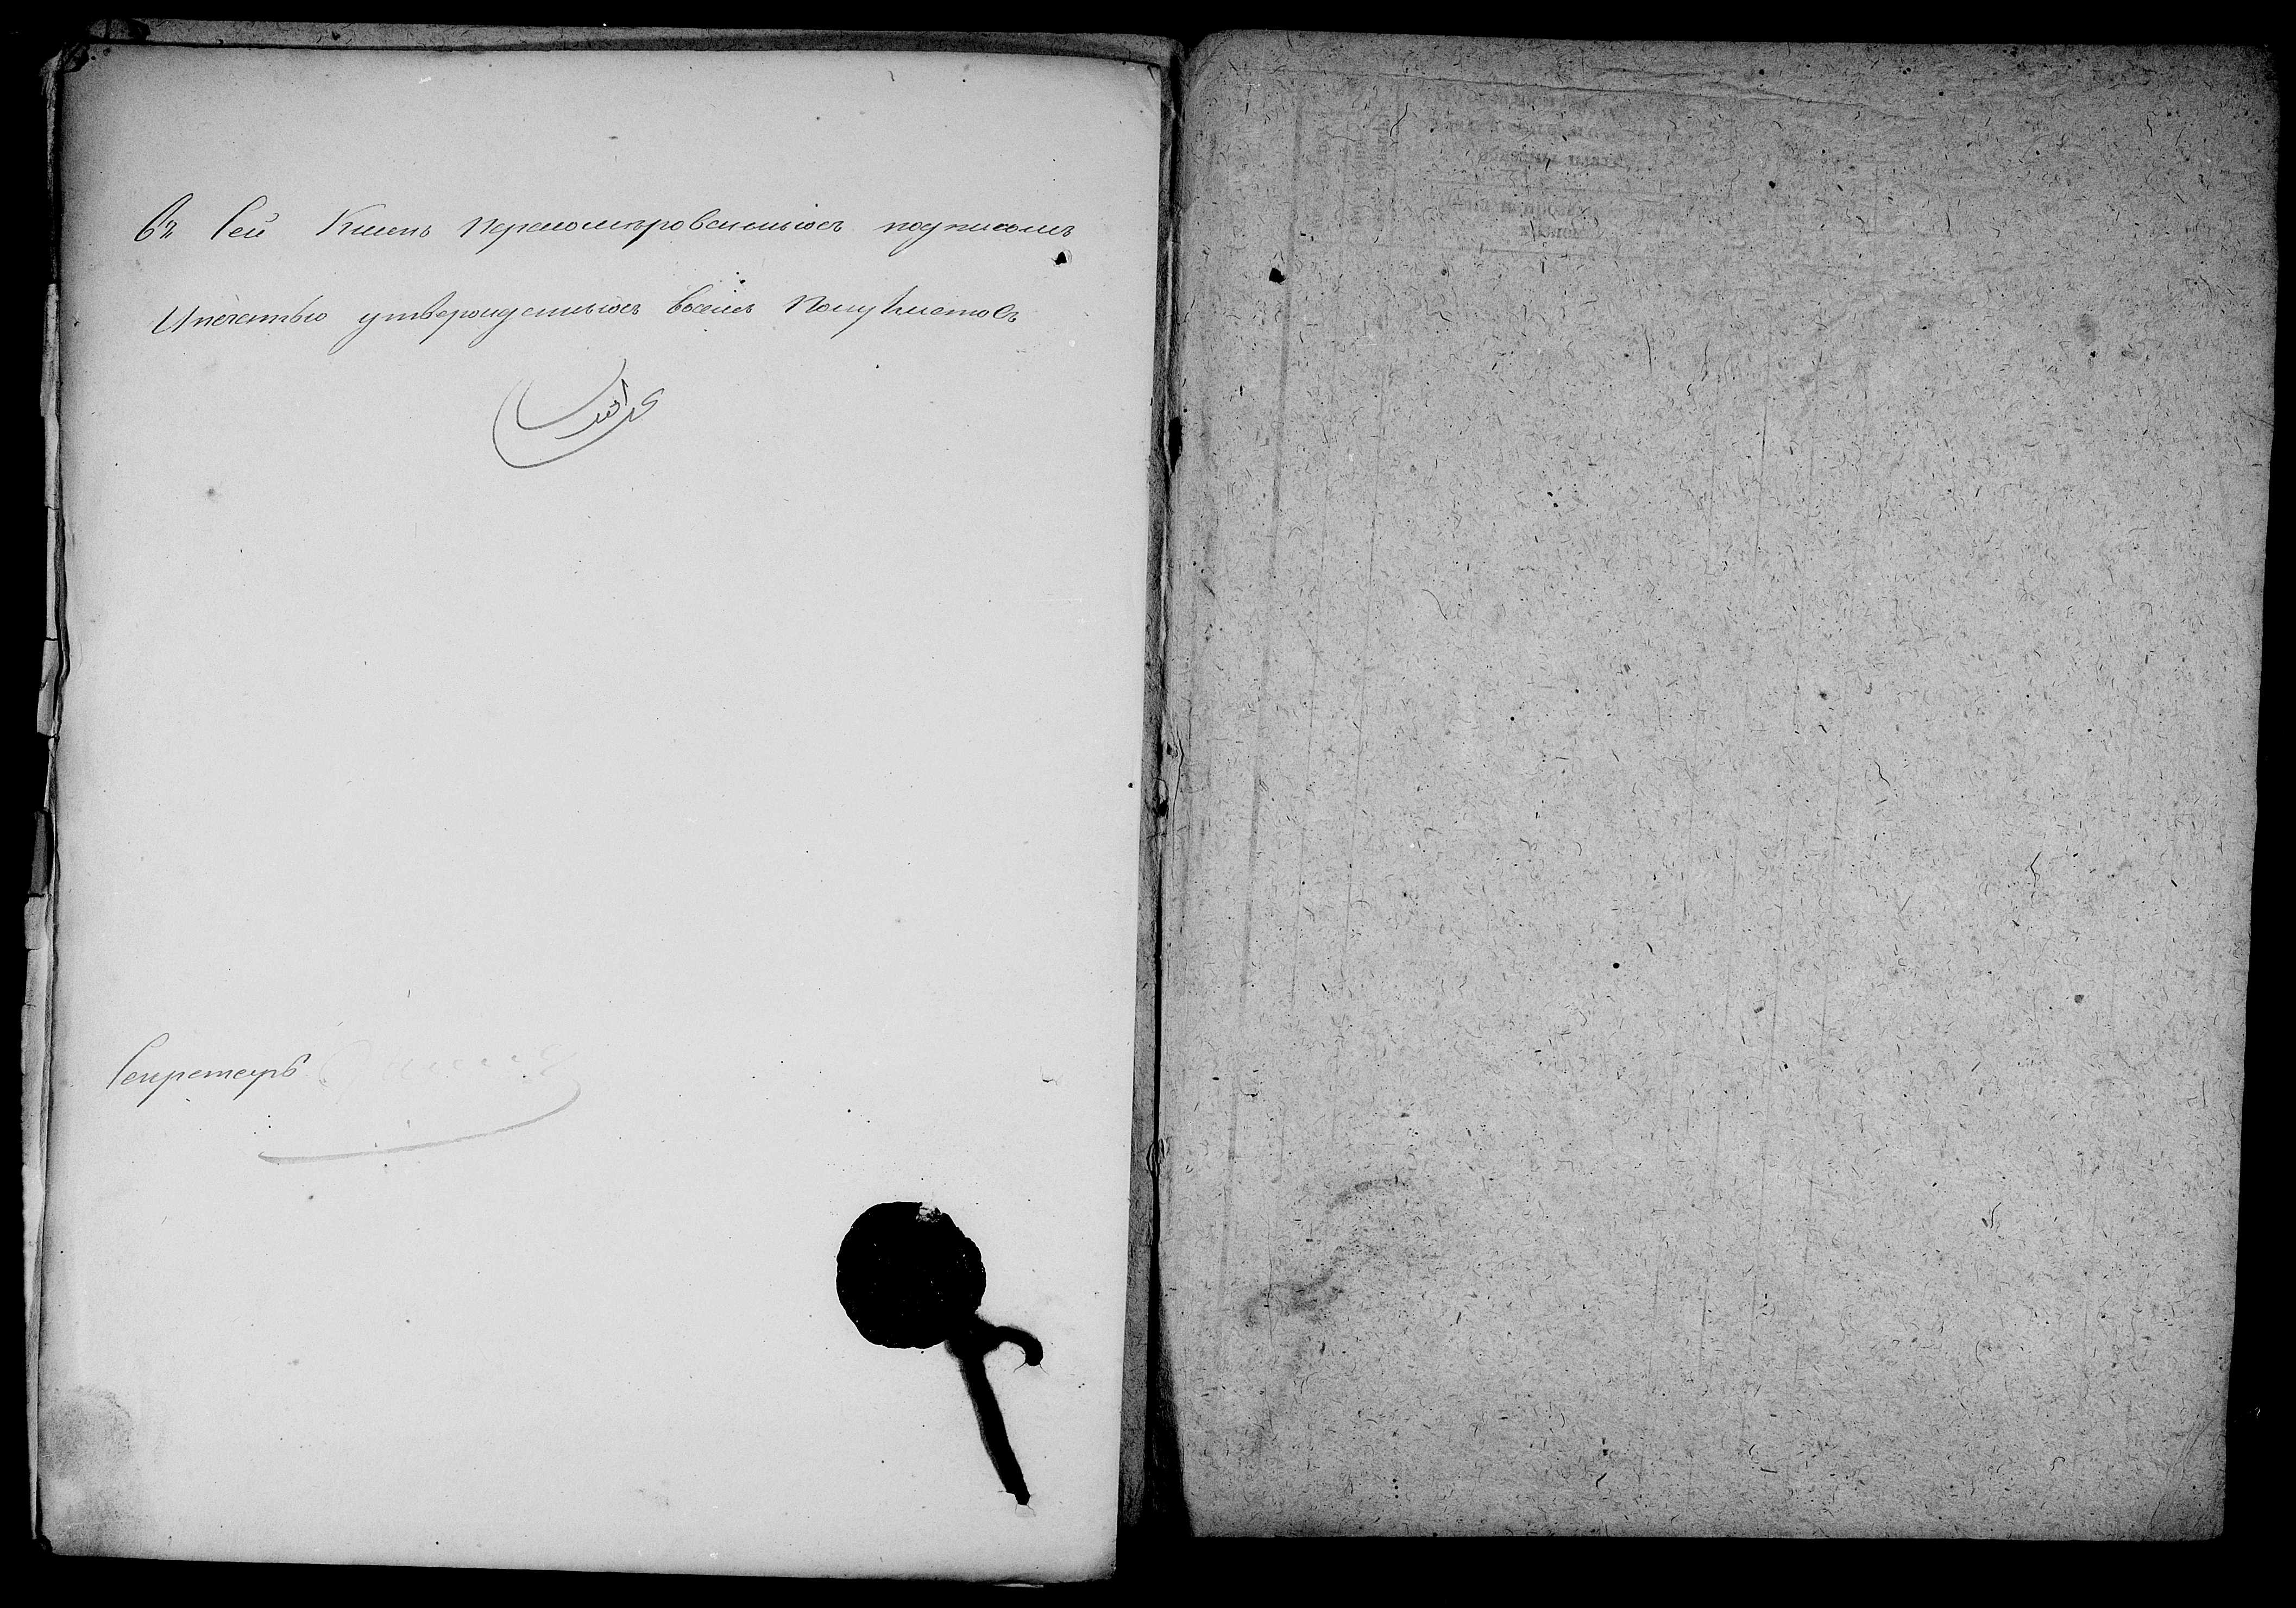 Въ Сей Книгѣ Переномерованныхъ подписомъ
И печатью утвержденныхъ восемь Полулистовъ
Секретарь